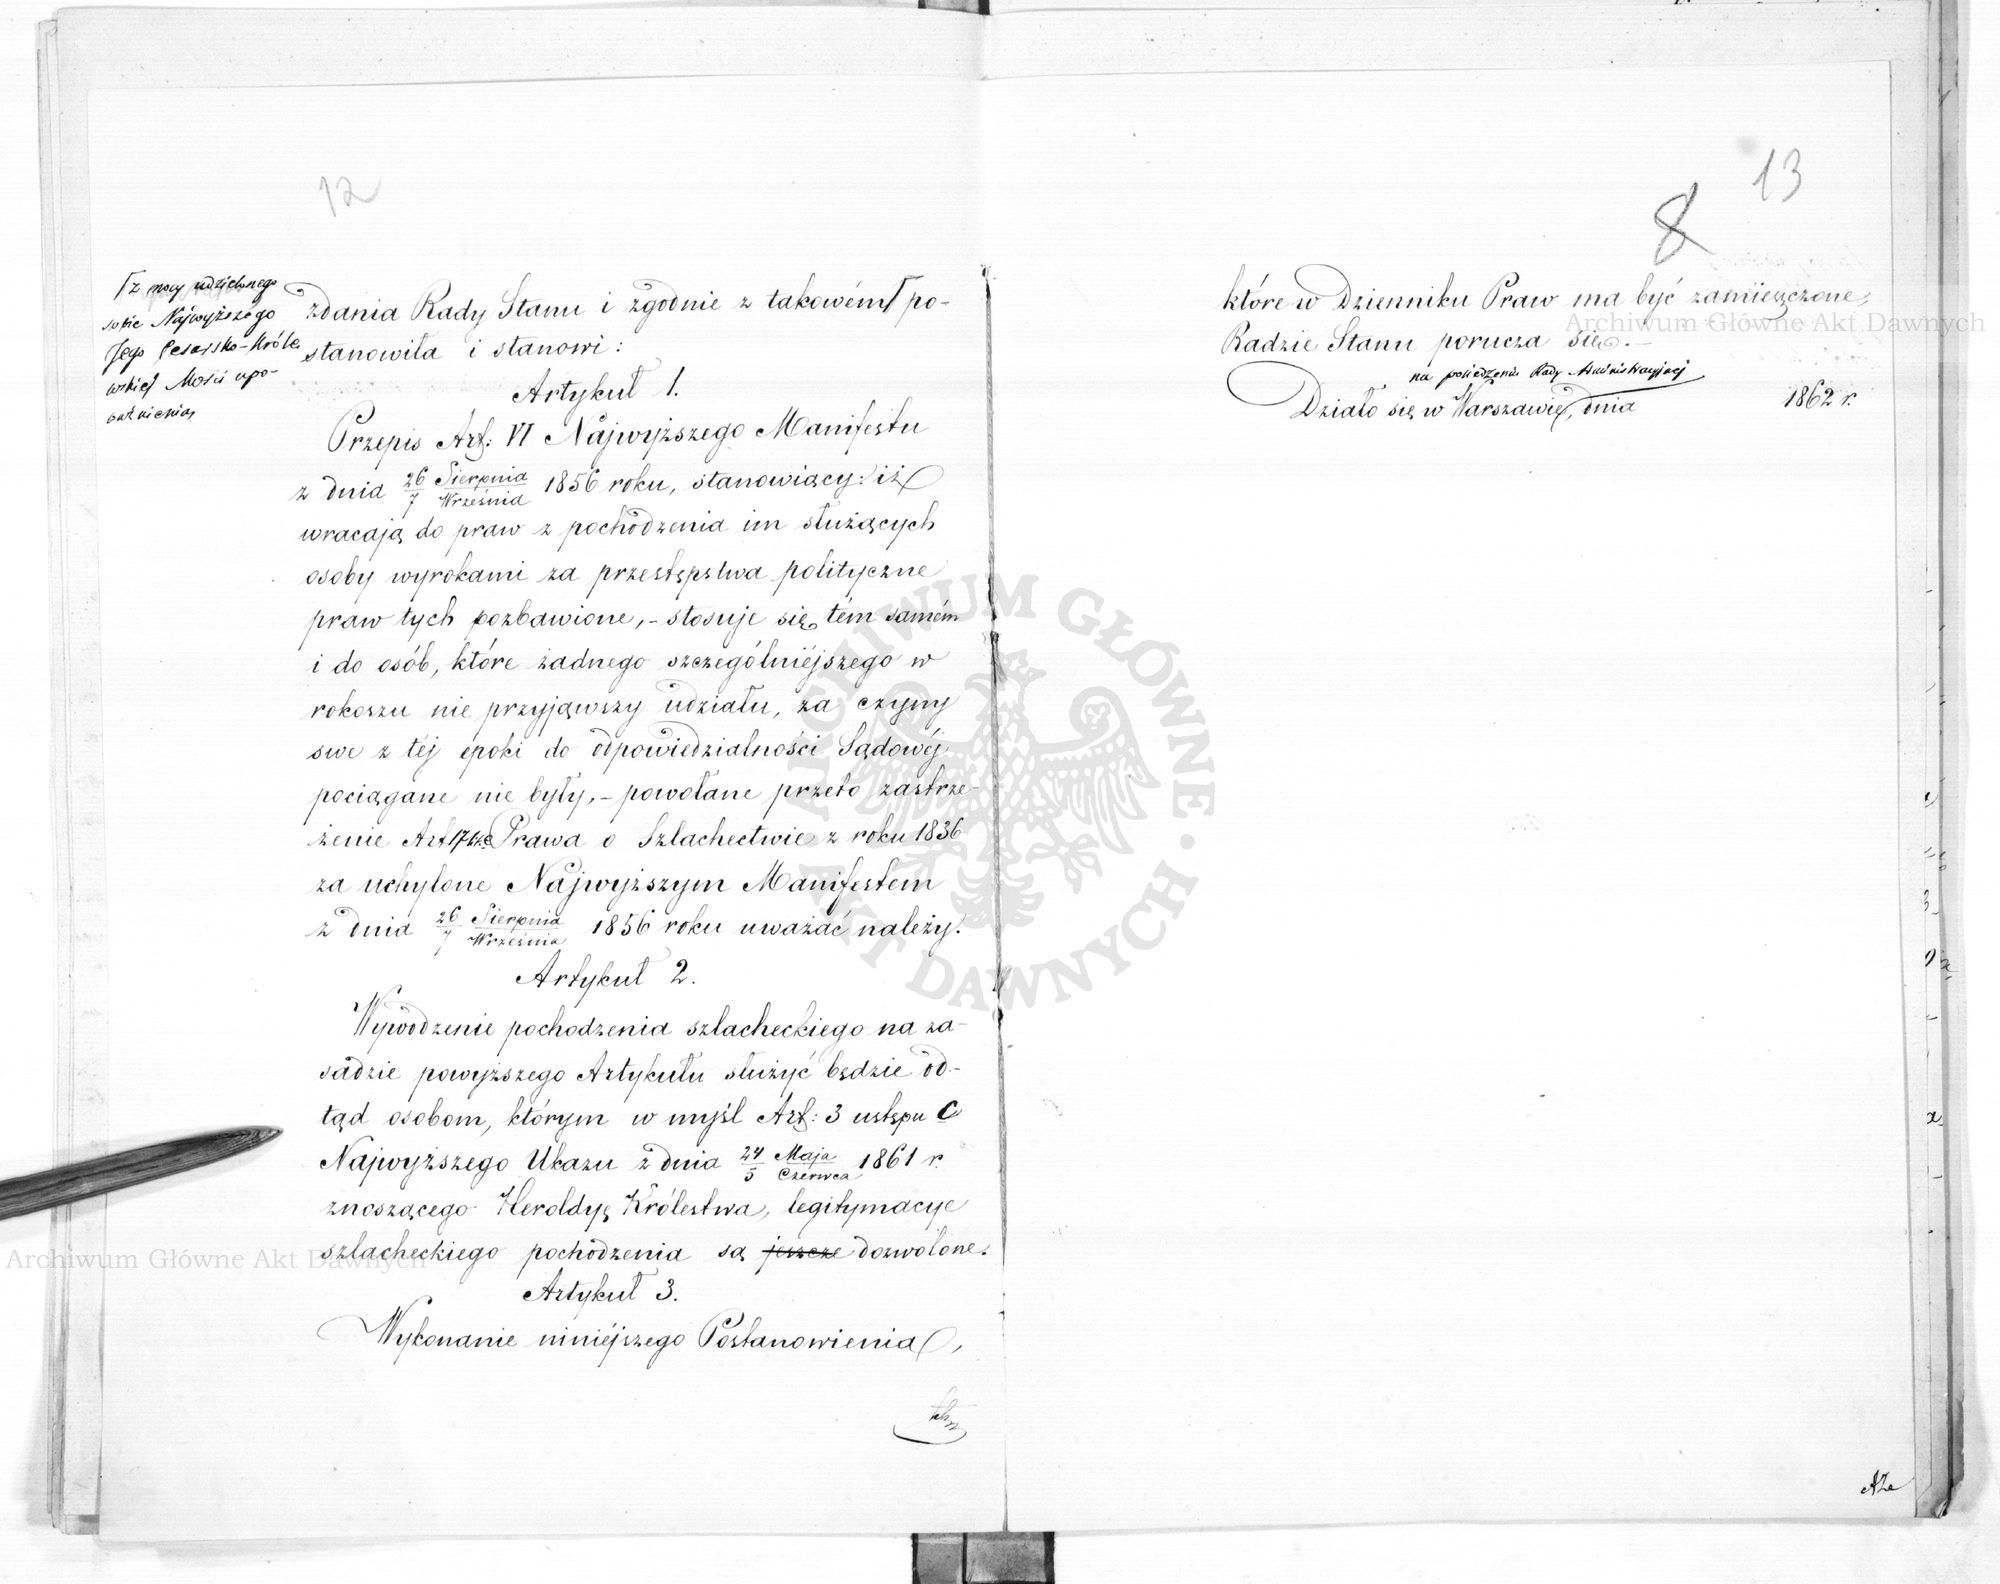 12
⌈z mocy udzielonego
sobie Najwyższego
Jego Cesarsko-Króle
wskiej Mości upo-
ważnienia,
zdania Rady Stanu i zgodnie z takowém⌈ po-
stanowiła i stanowi:
Artykuł 1.
Przepis Art: VI Najwyższego Manifestu
z dnia 26/7 Sierpnia/Września 1856 roku, stanowiący: iż
wracają do praw z pochodzenia im służących
osoby wyrokami za przestępstwa polityczne
praw tych pozbawione, - stosuje się tém samém
i do osób, które żadnego szczególniéjszego w
rokoszu nie przyjąwszy udziału, za czyny
swe z téj epoki do odpowiedzialności Sądowéj
pociągane nie były, - powołane przeto zastrze-
żenie Art 17 Prawa o Szlachectwie z roku 1836
za uchylone Najwyższym Manifestem
z dnia 26/7 Sierpnia/Września 1856 roku uważać należy.
Artykuł 2.
Wywodzenie pochodzenia szlacheckiego na za-
sadzie powyższego Artykułu służyć będzie od-
tąd osobom, którym w myśl Art: 3 ustępu C
Najwyższego Ukazu z dnia 24/5 Maja/Czerwca 1861 r.
znoszącego Heroldyę Królestwa, legitymacye
szlacheckiego pochodzenia są jeszcze dozwolone.
Artykuł 3.
Wykonanie niniéjszego Postanowienia,
13
8
które w Dzienniku Praw ma być zamieszczone,
Radzie Stanu porucza się.-
na posiedzeniu Rady Administracyjnej
Działo się w Warszawie, dnia 1862 r.
ARCHIWUM GŁÓWNE AKT DAWNYCH
Archiwum Główne Akt Dawnych
Archiwum Główne Akt Dawnych